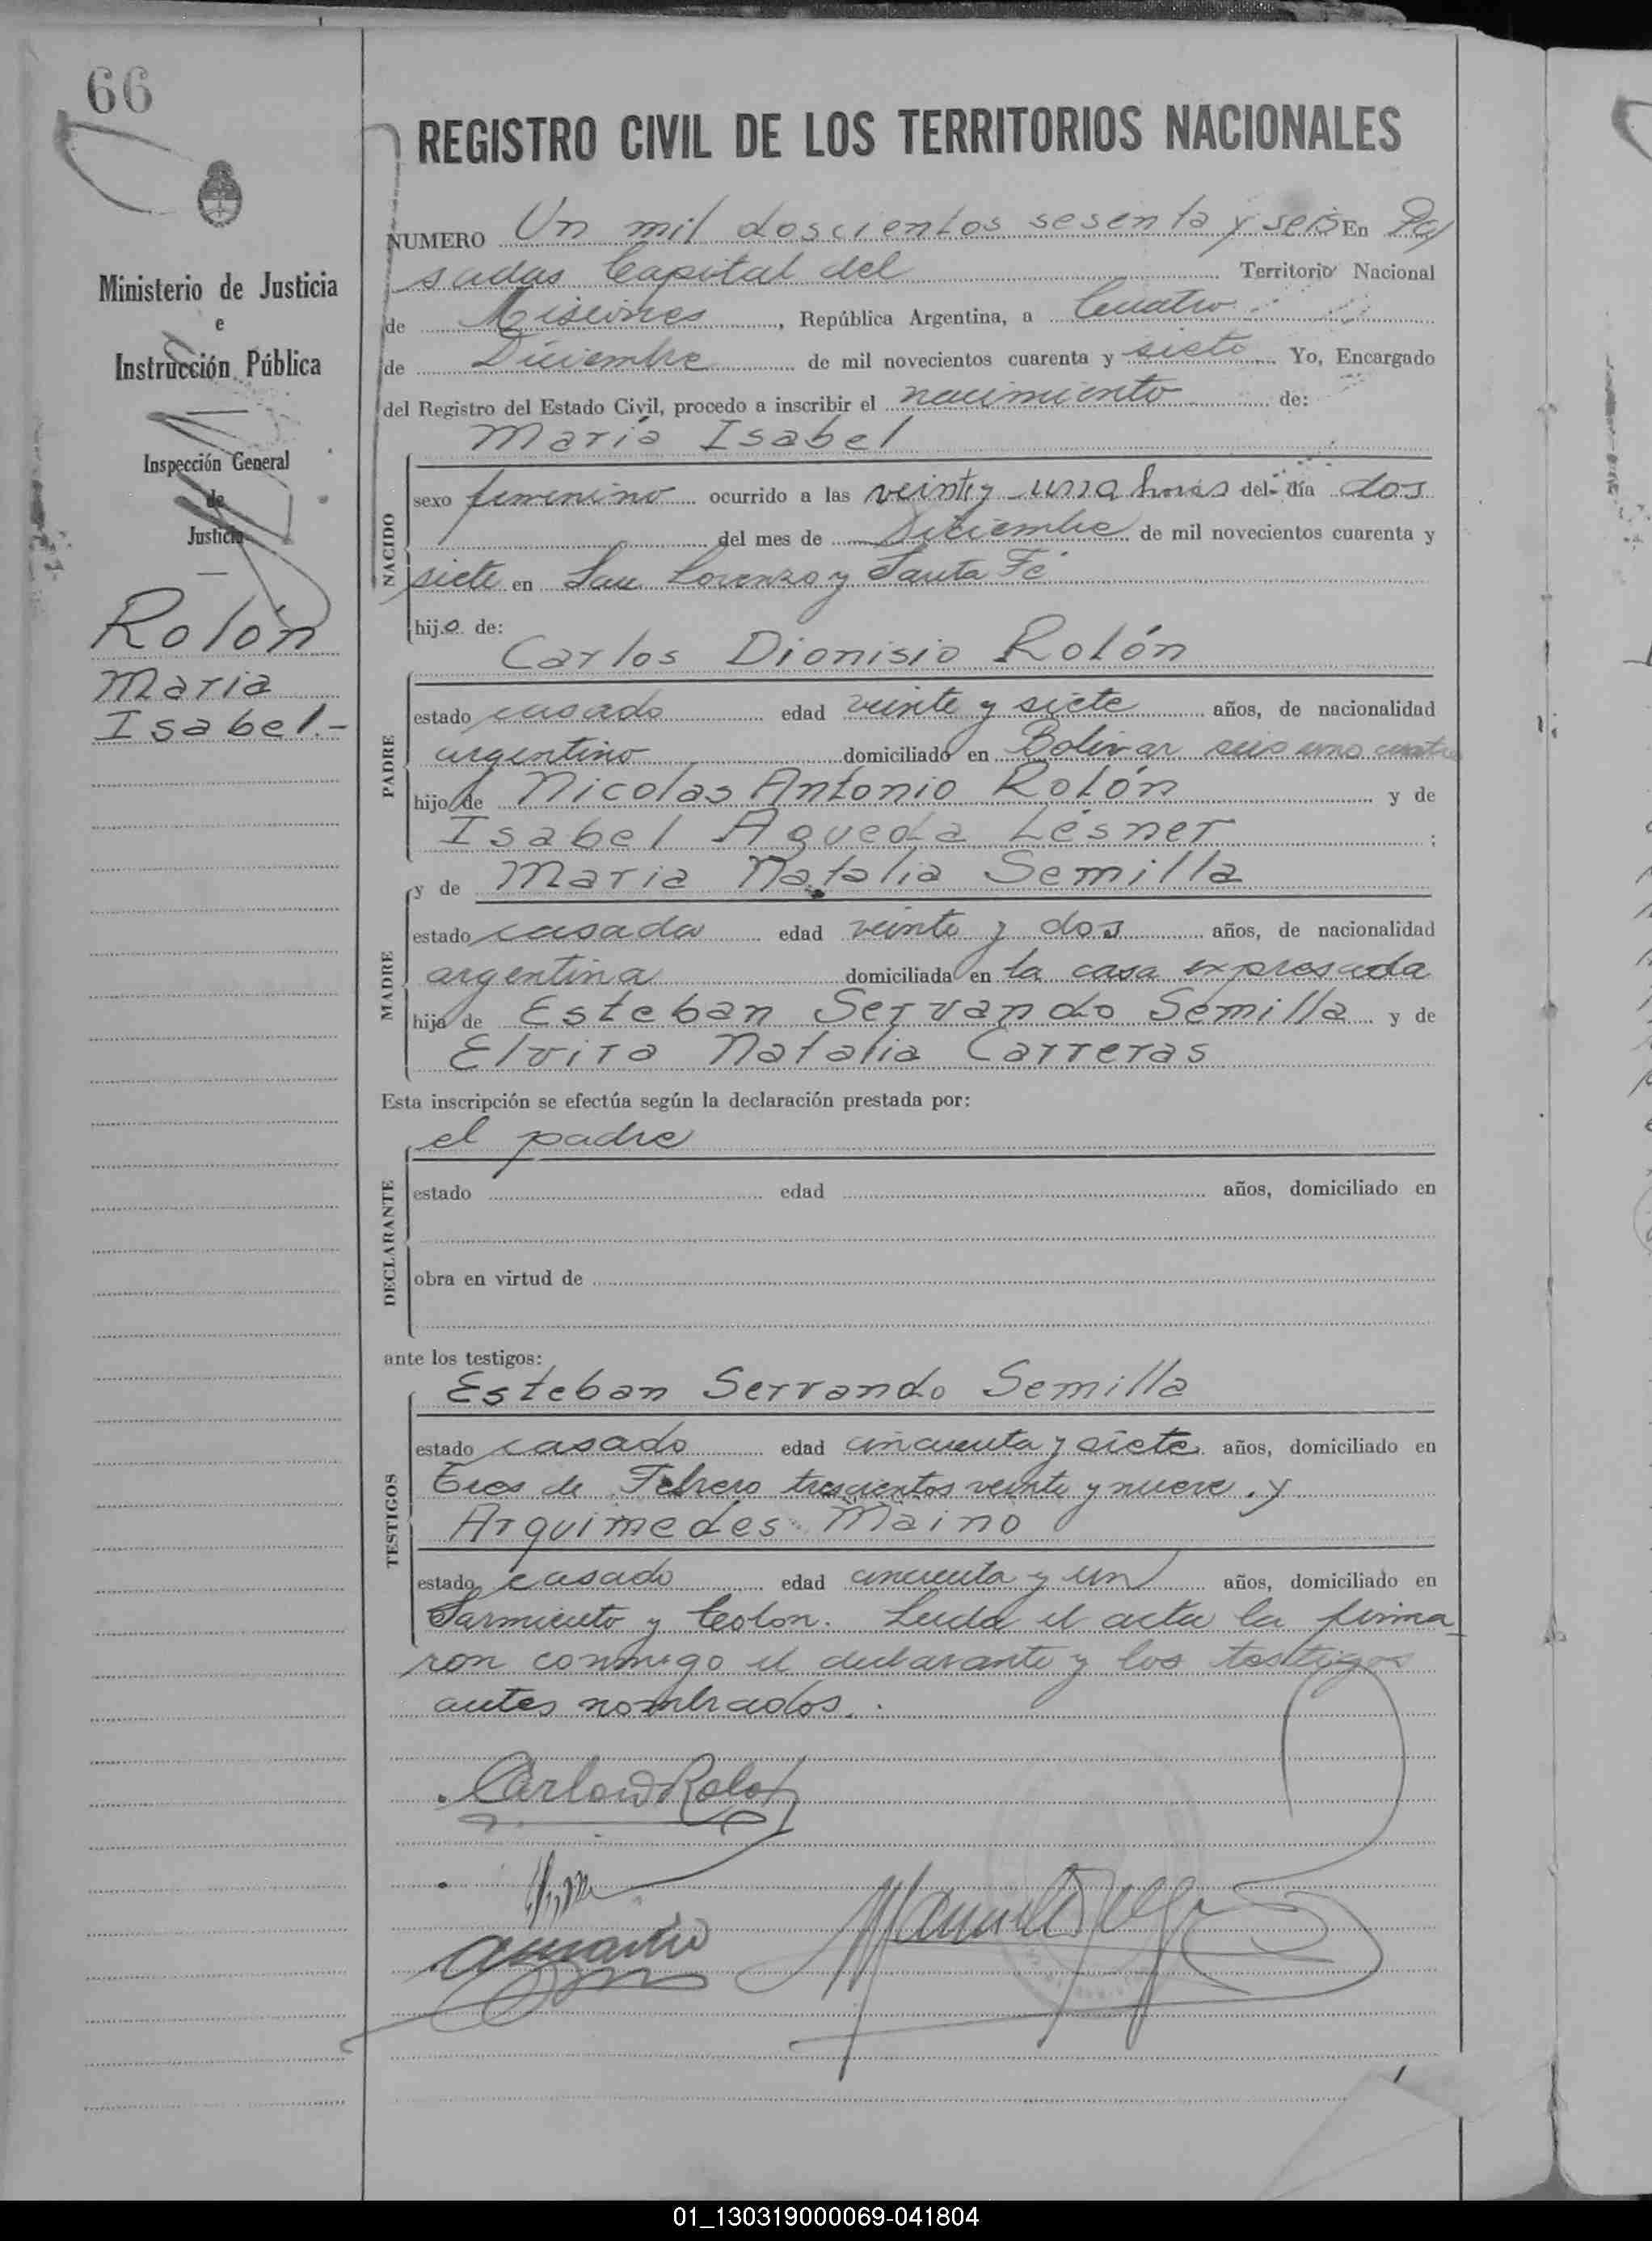 66
REGISTRO CIVIL DE LOS TERRITORIOS NACIONALES
Ministerio de Justicia
e
Instrucción Pública
Inspección General
de
Justicia
Rolón
Maria
Isabel.-
NUMERO Un mil doscientos sesenta y seis En Po
sadas Capital del Territorio Nacional
de Misiones, República Argentina, a Cuatro
de Diciembre de mil novecientos cuarenta y siete Yo, Encargado
del Registro del Estado Civil, procedo a inscribir el nacimiento de:
María Isabel
NACIDO
sexo femenino ocurrido a las veinte y una horas del día dos
del mes de Diciembre de mil novecientos cuarenta y
siete en San Lorenzo y Santa Fé
hija de:
Carlos Dionisio Rolón
PADRE
estado casado edad veinte y siete años, de nacionalidad
argentino domiciliado en Bolivar seis uno cuatro
hijo de Nicolas Antonio Rolón y de
Isabel Agueda Lésner ;
y de Maria Natalia Semilla
MADRE
estado casada edad veinte y dos años, de nacionalidad
argentina domiciliada en la casa expresada
hija de Esteban Servando Semilla y de
Elvira Natalia Carreras
Esta inscripción se efectúa según la declaración prestada por:
el padre
DECLARANTE
estado edad años, domiciliado en
obra en virtud de
ante los testigos:
Esteban Servando Semilla
TESTIGOS
estado casado edad cincuenta y siete años, domiciliado en
Tres de Febrero trescientos veinte y nueve. y
Arquimedes Maino
estado casado edad cincuenta y un años, domiciliado en
Sarmiento y Colon. Leida el acta la firma
ron conmigo el declarante y los testigos
antes nombrados.
Carlos D Rolon
01_130319000069-041804